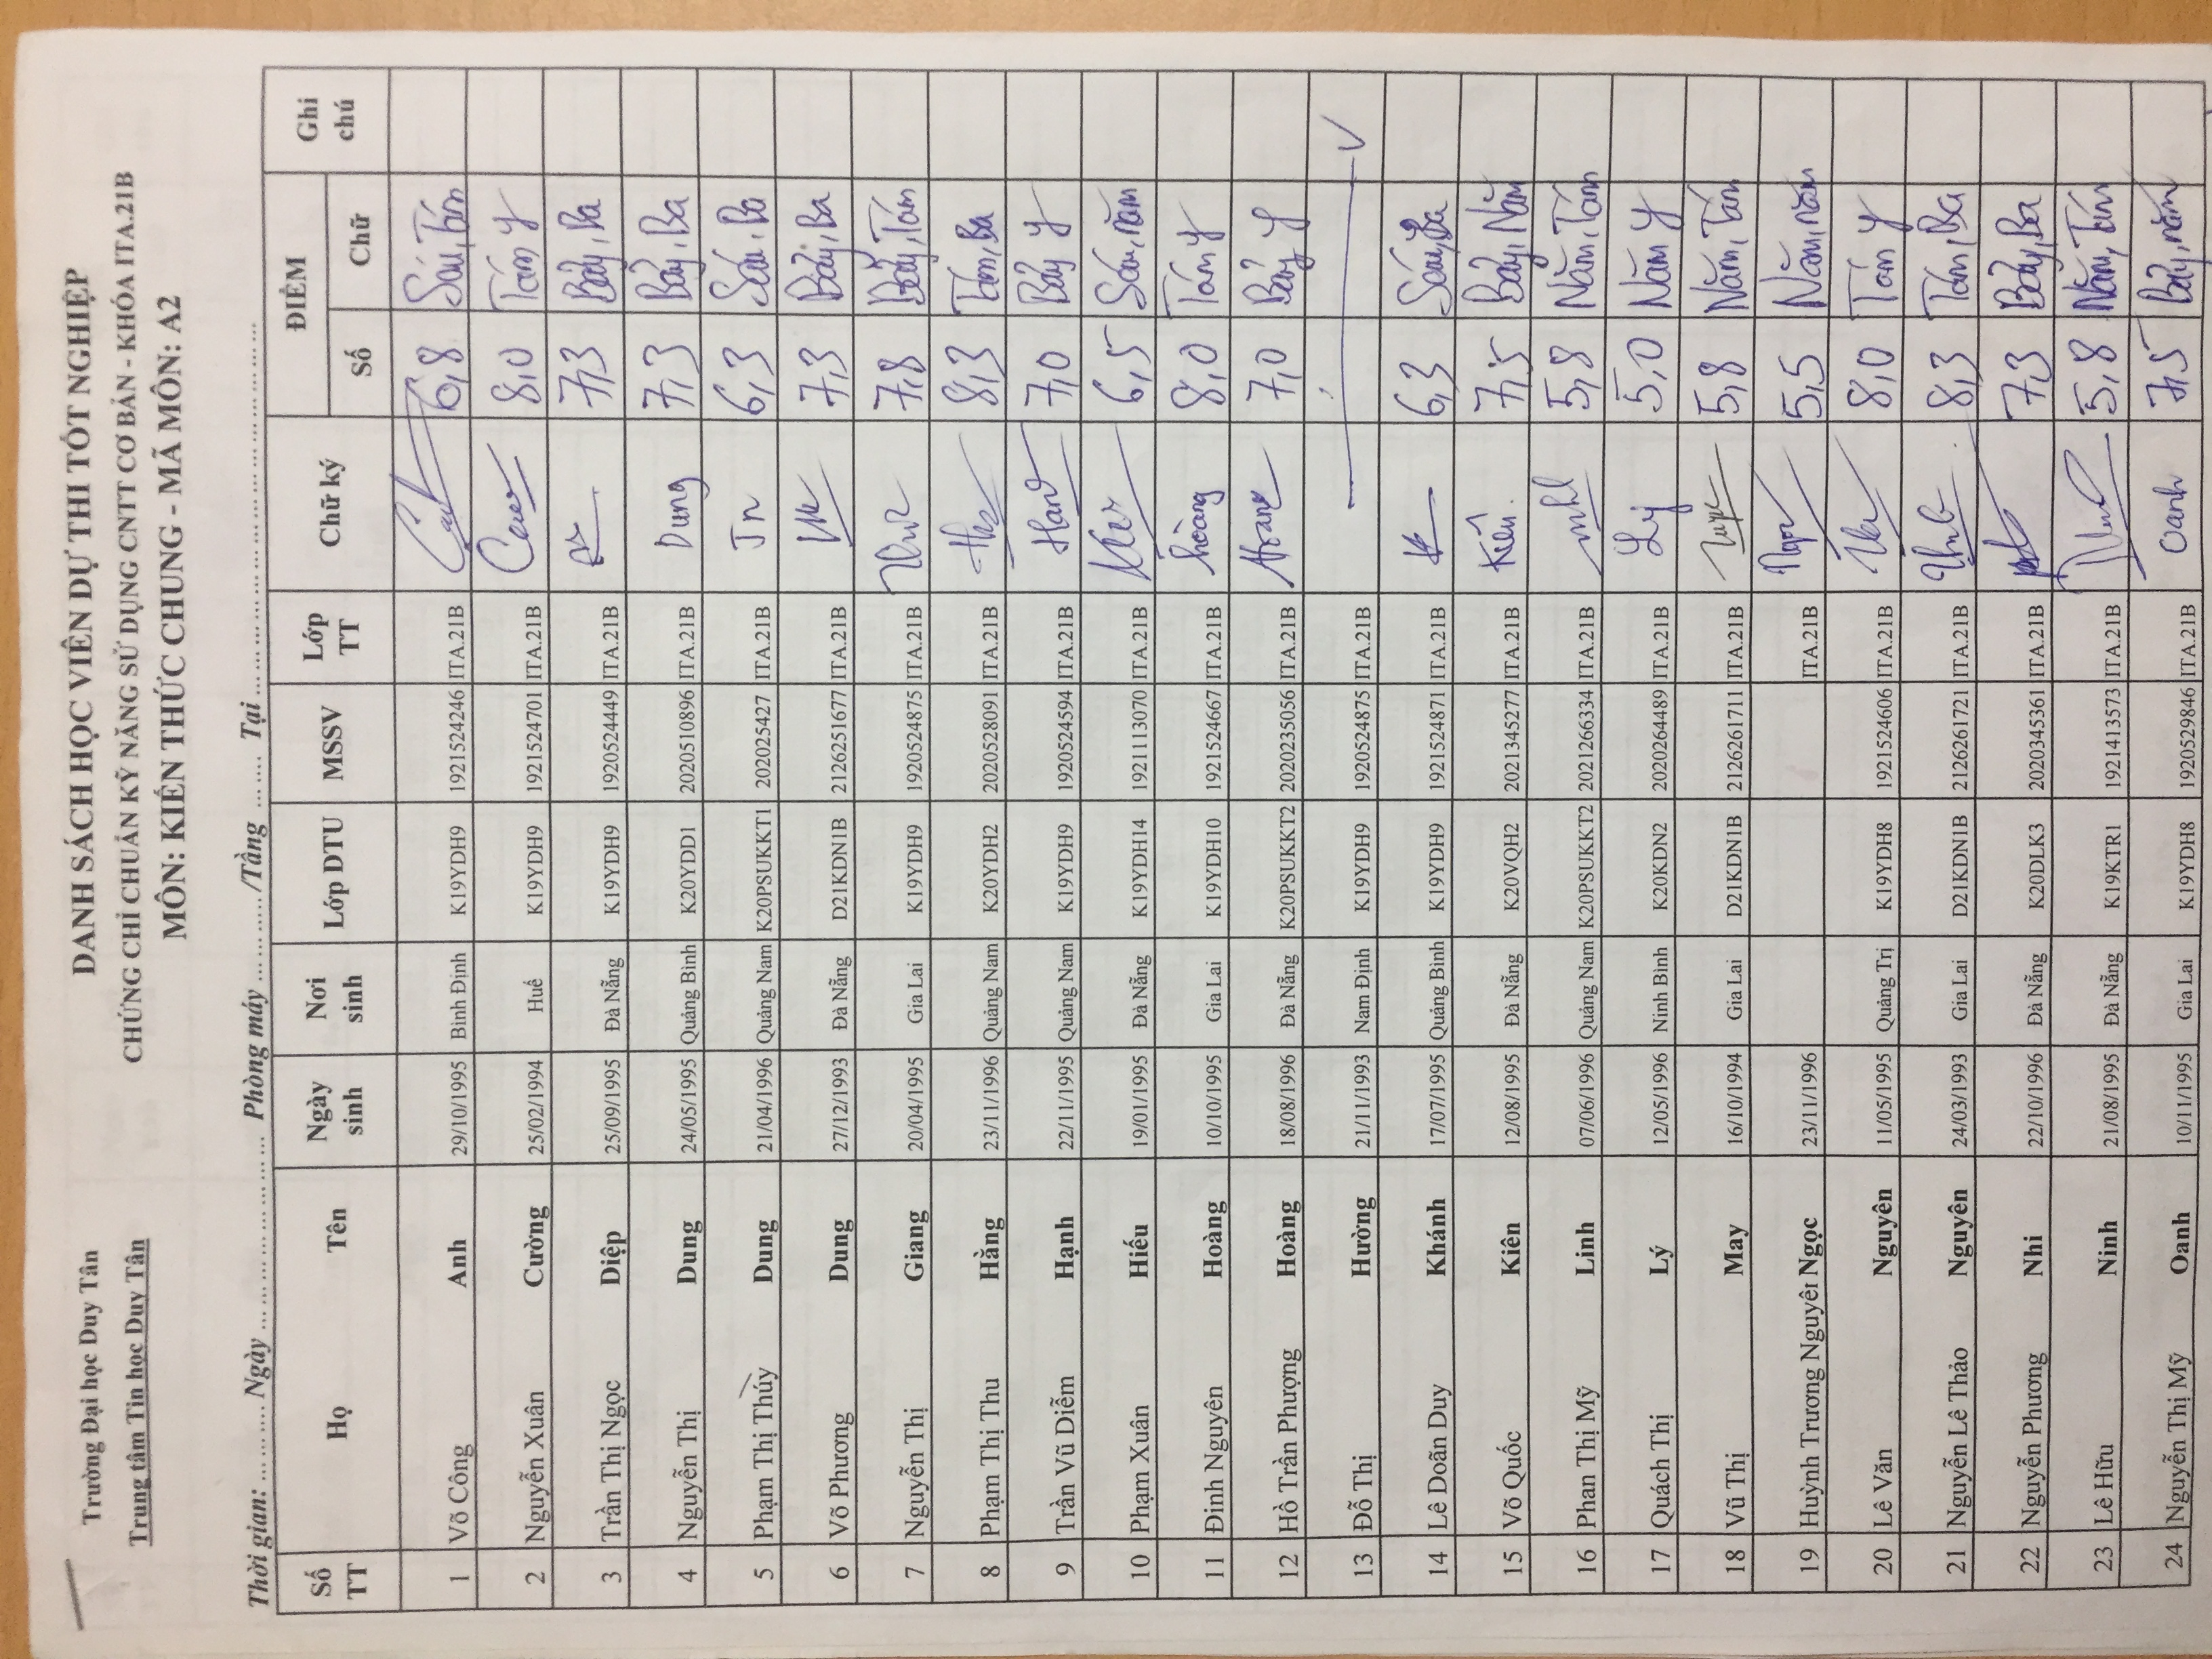 Trường Đại học Duy Tân
Trung tâm Tin học Duy Tân
DANH SÁCH HỌC VIÊN DỰ THI TỐT NGHIỆP
CHỨNG CHỈ CHUẨN KỸ NĂNG SỬ DỤNG CNTT CƠ BẢN - KHÓA ITA.21B
MÔN: KIẾN THỨC CHUNG - MÃ MÔN: A2
Thời gian: ... ... ...... Ngày ... ... ... ... ... ... ... Phòng máy ... ... ... ... /Tầng ... ... ... Tại ... ... ... ... ... ... ... ... ... ... ...
Số TT Họ Tên Ngày sinh Nơi sinh Lớp DTU MSSV Lớp TT Chữ ký ĐIỂM Số Chữ Ghi chú
1 Võ Công Anh 29/10/1995 Bình Định K19YDH9 1921524246 ITA.21B 6,8 Sáu, Tám
2 Nguyễn Xuân Cường 25/02/1994 Huế K19YDH9 1921524701 ITA.21B 8,0 Tám y
3 Trần Thị Ngọc Diệp 25/09/1995 Đà Nẵng K19YDH9 1920524449 ITA.21B 7,3 Bảy, Ba
4 Nguyễn Thị Dung 24/05/1995 Quảng Bình K20YDD1 2020510896 ITA.21B Dung 7,3 Bảy, Ba
5 Phạm Thị Thúy Dung 21/04/1996 Quảng Nam K20PSUKKT1 202025427 ITA.21B 6,3 Sáu, Ba
6 Võ Phương Dung 27/12/1993 Đà Nẵng D21KDN1B 2126251677 ITA.21B 7,3 Bảy, Ba
7 Nguyễn Thị Giang 20/04/1995 Gia Lai K19YDH9 1920524875 ITA.21B 7,8 Bảy, Tám
8 Phạm Thị Thu Hằng 23/11/1996 Quảng Nam K20YDH2 2020528091 ITA.21B 8,3 Tám, Ba
9 Trần Vũ Diễm Hạnh 22/11/1995 Quảng Nam K19YDH9 1920524594 ITA.21B 7,0 Bảy y
10 Phạm Xuân Hiếu 19/01/1995 Đà Nẵng K19YDH14 1921113070 ITA.21B 6,5 Sáu, năm
11 Đinh Nguyên Hoàng 10/10/1995 Gia Lai K19YDH10 1921524667 ITA.21B hoàng 8,0 Tám y
12 Hồ Trần Phượng Hoàng 18/08/1996 Đà Nẵng K20PSUKKT2 2020235056 ITA.21B 7,0 Bảy y
13 Đỗ Thị Hường 21/11/1993 Nam Định K19YDH9 1920524875 ITA.21B V
14 Lê Doãn Duy Khánh 17/07/1995 Quảng Bình K19YDH9 1921524871 ITA.21B 6,3 Sáu, Ba
15 Võ Quốc Kiên 12/08/1995 Đà Nẵng K20VQH2 2021345277 ITA.21B Kiên 7,5 Bảy, Năm
16 Phan Thị Mỹ Linh 07/06/1996 Quảng Nam K20PSUKKT2 2021266334 ITA.21B 5,8 Năm, Tám
17 Quách Thị Lý 12/05/1996 Ninh Bình K20KDN2 2020264489 ITA.21B Lý 5,0 Năm y
18 Vũ Thị May 16/10/1994 Gia Lai D21KDN1B 2126261711 ITA.21B 5,8 Năm, Tám
19 Huỳnh Trương Nguyên Ngọc 23/11/1996 ITA.21B 5,5 Năm, năm
20 Lê Văn Nguyên 11/05/1995 Quảng Trị K19YDH8 1921524606 ITA.21B 8,0 Tám y
21 Nguyễn Lê Thảo Nguyên 24/03/1993 Gia Lai D21KDN1B 2126261721 ITA.21B 8,3 Tám, Ba
22 Nguyễn Phương Nhi 22/10/1996 Đà Nẵng K20DLK3 2020345361 ITA.21B 7,3 Bảy, Ba
23 Lê Hữu Ninh 21/08/1995 Đà Nẵng K19KTR1 1921413573 ITA.21B 5,8 Năm, Tám
24 Nguyễn Thị Mỹ Oanh 10/11/1995 Gia Lai K19YDH8 1920529846 ITA.21B Oanh 7,5 Bảy, năm